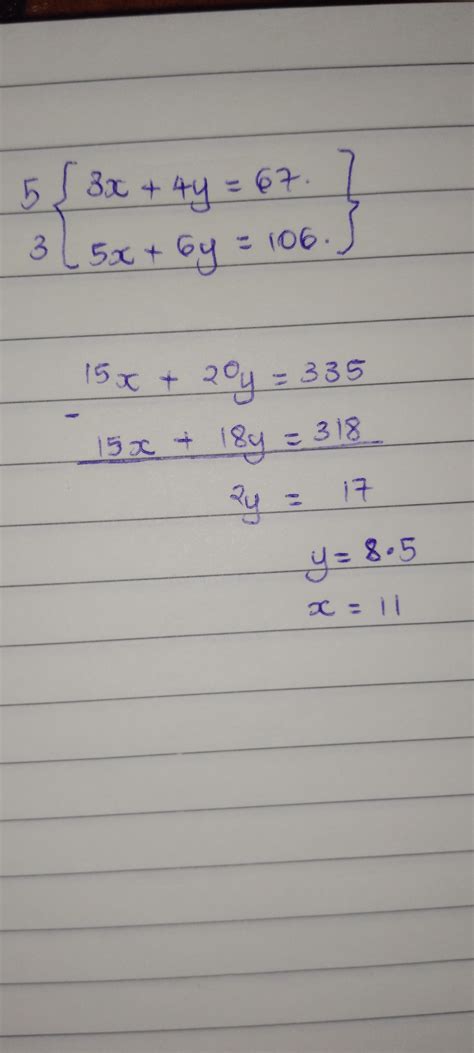 5 { 3x + 4y = 67. }
3 { 5x + 6y = 106. }
15x + 20y = 335
-
15x + 18y = 318
2y = 17
y = 8.5
x = 11